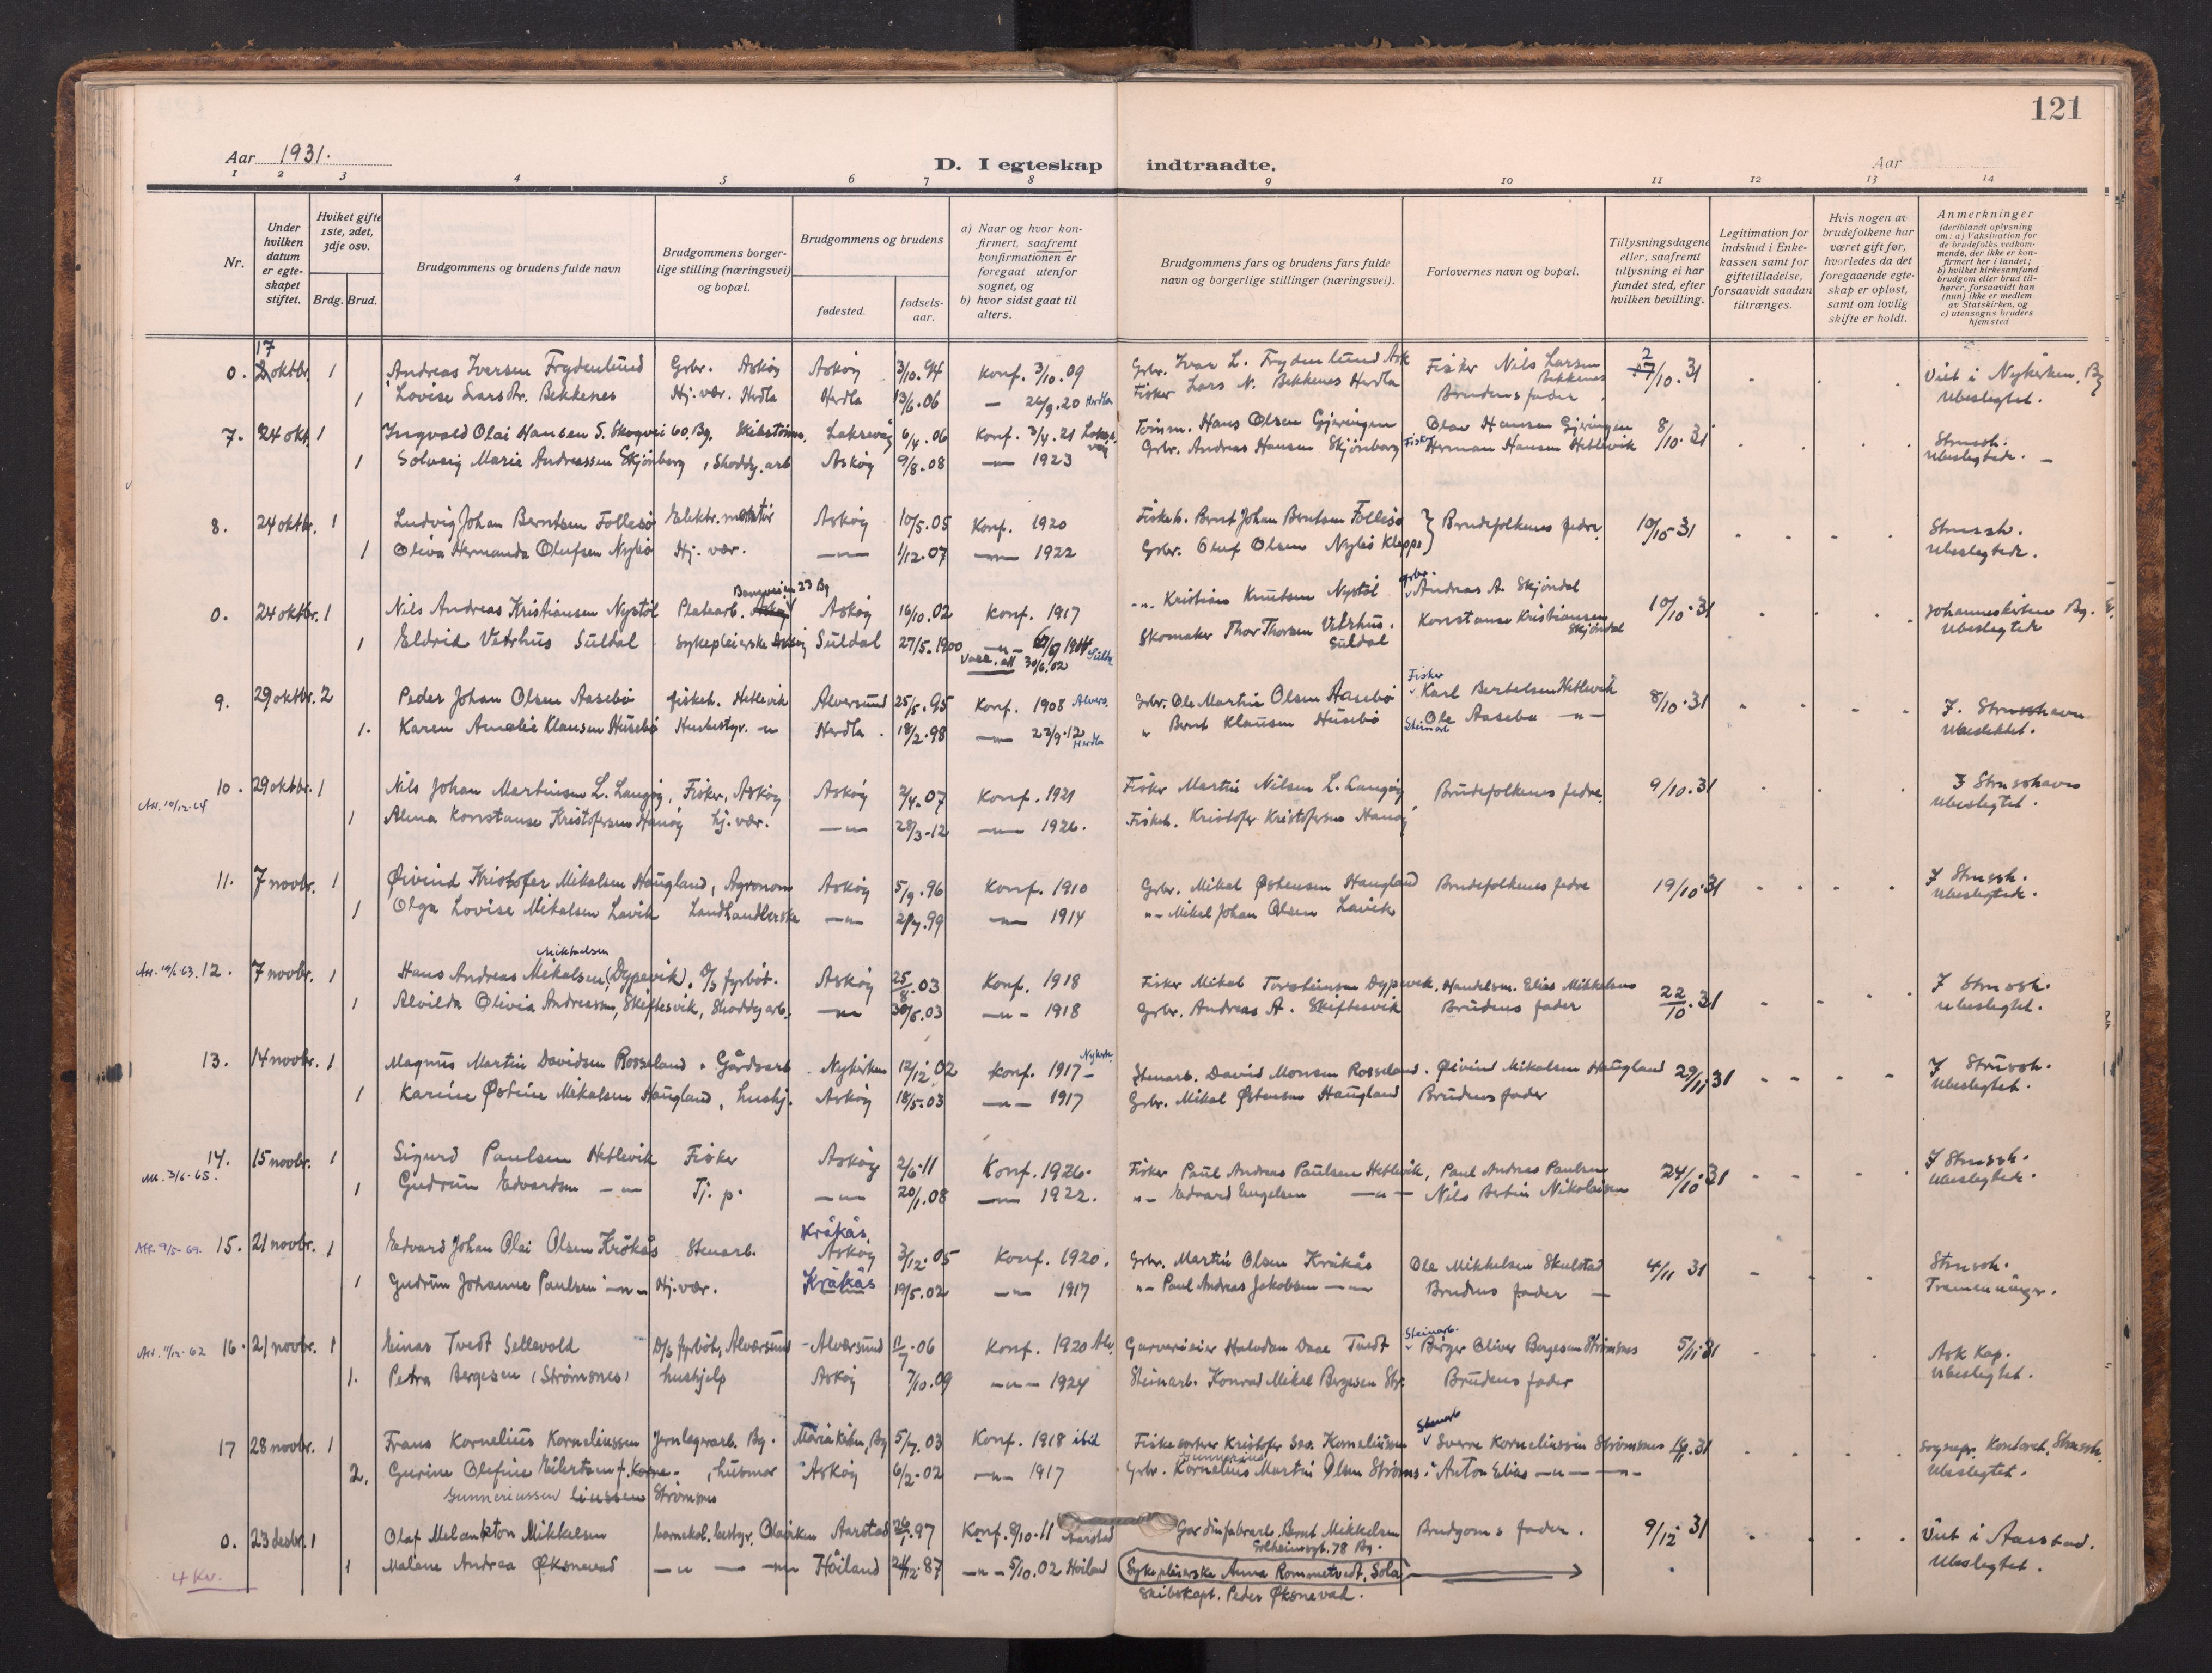 121
Aar 1931.
D. I egteskap indtraadte.
Aar
1 2 3 4 5 6 7 8 9 10 11 12 13 14
Nr.
Under hvilken datum er egteskapet stiftet.
Hviket gifte 1ste, 2det, 3dje osv.
Brdg. Brud.
Brudgommens og brudens fulde navn
Brudgommens borgerlige stilling (næringsvei) og bopæl.
Brudgommens og brudens
fødested.
fødselsaar.
a) Naar og hvor konfirmert, saafremt konfirmationen er foregaat utenfor sognet, og
b) hvor sidst gaat til alters.
Brudgommens fars og brudens fars fulde navn og borgerlige stillinger (næringsvei).
Forlovernes navn og bopæl.
Tillysningsdagene eller, saafremt tillysning ei har fundet sted, efter hvilken bevilling.
Legitimation for indskud i Enkekassen samt for giftetilladelse, forsaavidt saadan tiltrænges.
Hvis nogen av brudefolkene har været gift før, hvorledes da det foregaaende egteskap er opløst, samt om lovlig skifte er holdt.
Anmerkninger (deriblandt oplysning om: a) Vaksination for de brudefolks vedkommende, der ikke er konfirmert her i landet; b) hvilket kirkesamfund brudgom eller brud tilhører, forsaavidt han (hun) ikke er medlem av Statskirken, og c) utensogns bruders hjemsted
0. 17 oktbr. 1 Andreas Iversen Frydenlund Grbr. Askøy Askøy 3/10. 94 Konf. 3/10. 09 Grbr. Ivar L. Frydenlund Ask Fisker Nils Larsen Bekkenes /10. 31 Viet i Nykirken. Bg
1 Lovise Larsdtr. Bekkenes Hj. vær. Herdla Herdla 13/6. 06 — 26/9. 20 Herdla Fisker Lars N. Bekkenes Herdla Brudens fader Ubeslegtet.
7. 24 okt. 1 Ingvald Olai Hansen S. Skogvei 60. Bg. Laksevåg 6/4. 06 Konf. 3/4. 21 Laksevåg Hans Olsen Gjeringen Olav Hansen Gjeringen 8/10. 31 Strussh.
1 Solveig Marie Andreassen Skjönberg, Shoddy. arb Askøy 9/8. 08 — " — 1923 Grbr. Andreas Hansen Skjönberg Fisker Herman Hansen Hetlevik Ubeslegtede. —
8. 24 oktbr. 1 Ludvig Johan Berntsen Follesø Elektr. montör Askøy 10/5. 05 Konf. 1920 Fiskeh. Bernt Johan Berntsen Follesø } Brudefolkenes fedre 10/10 31 Strussh.
1 Oliva Hermanda Olufsen Nybø Hj. vær. — " — 1/12. 07 — " — 1922 Grbr. Oluf Olsen Nybø Kleppe Ubeslegtede.
0. 24 oktbr. 1 Nils Andreas Kristiansen Nystöl Platearb. 23 Bg Askøy 16/10. 02 Konf. 1917 - " - Kristian Knutsen Nystöl grbr. Andreas A. Skjöndal 10/10. 31 Johanneskirken Bg.
1 Eldrid Vatrhus Suldal Sykepleierske Askøy Suldal 27/5. 1900 — " — 1914 Suldal Vacc. att 30/6. 02 Skomaker Thor Thorsen Vatrhus. Suldal Konstanse Kristiansen Skjöndal Ubeslegtede
9. 29 oktbr. 2 Peder Johan Olsen Aasebø fiskeh. Hetlevik Alversund 25/5. 95 Konf. 1908 Alvers. Grbr. Ole Martin Olsen Aasebø Fisker Karl Bertelsen Hetlevik 8/10. 31 7. Strusshavn
1. Karen Amalie Klausen Husebø Husbestyr. - " Herdla. 18/2. 98 — " — 22/9. 12 Herdla " Bernt Klausen Husebø Steinarb Ole Aasebø — " — Ubeslektet.
Att. 10/12-64 10. 29 oktbr. 1 Nils Johan Martinsen L. Langøy, Fisker, Askøy Askøy 2/4. 07 Konf. 1921 Fisker Martin Nilsen L. Langøy Brudefolkenes fedre. 9/10. 31 3 Strusshavn
1 Alma Konstanse Kristofersen Hanøy hj. vær. — " — 28/3-12 — " — 1926. Fiskeh. Kristofer Kristofersen Hanøy Ubeslegtet.
11. 7 novbr. 1 Øivind Kristofer Mikalsen Haugland, Agronom Askøy 5/9. 96 Konf. 1910 Grbr. Mikal Østensen Haugland Brudefolkenes fedre 19/10. 31 7 Strussh.
1 Olga Lovise Mikalsen Lavik Landhandlerske — " — 2/7. 99 — " — 1914 " - Mikal Johan Olsen Lavik Ubeslegtede.
Att. 19/6-63. 12. 7 novbr. 1 Mikkalsen Hans Andreas Mikalsen (Dypevik). D/s fyrböt. Askøy 25/8. 03 Konf. 1918 Fisker Mikal Torsteinsen Dypevik. Handelsm. Elias Mikkelsen 22/10. 31 7 Strussh.
1 Alvilda Olivia Andreassen, Skiftesvik, Shoddy arb. — " — 30/6. 03 — " — 1918 Grbr. Andreas A. Skiftesvik Brudens fader Ubeslegtet.
13. 14 novbr. 1 Magnus Martin Davidsen Rosseland. Gårdsarb. Nykirken 12/12. 02 Konf. 1917 - Nykirk. Stenarb. David Monsen Rosseland. Øivind Mikalsen Haugland 29/11 31 7 Strussh.
1 Karine Østine Mikalsen Haugland, hushj. Askøy 18/5. 03 — " — 1917 Grbr. Mikal Østensen Haugland Brudens fader Ubeslegtet.
Att. 3/6-65. 14. 15 novbr. 1 Sigurd Paulsen Hetlevik Fisker Askøy 2/6. 11 Konf. 1926. Fisker Paul Andreas Paulsen Hetlevik, Paul Andreas Paulsen 24/10. 31 7 Strussh.
1 Gudrun Edvardsen — " — Tj. p. — " — 20/1. 08 — " — 1922. " - Edvard Engelsen — " — Nils Bertin Nikolaisen Ubeslegtede.
Att. 9/5-69. 15. 21 novbr. 1 Edvard Johan Olai Olsen Kråkås Stenarb. Kråkås, Askøy 3/12. 05 Konf. 1920. Grbr. Martin Olsen Kråkås Ole Mikkelsen Skulstad 4/11 31 Strussh.
1 Gudrun Johanne Paulsen — " — Hj. vær. Kråkås 19/5. 02 — " — 1917 " - Paul Andreas Jakobsen — " — Brudens fader — Tremenninger.
Att. 11/12-62 16. 21 novbr. 1 Einar Tvedt Sellevold D/s fyrböt, Alversund - Alversund 11/7. 06 Konf. 1920 Alv. Garverieier Halvdan Daae Tvedt Steinarb. Birger Oliver Bergesen Strömsnes 5/11. 31 Ask Kap.
1. Petra Bergesen (Strömsnes) hushjelp Askøy 7/10. 09 — " — 1924 Steinarb. Konrad Mikal Bergesen Str. Brudens fader Ubeslegtet.
17 28 novbr. 1 Frans Kornelius Korneliussen Jernlagerarb. Bg. Mariakirken, Bg 5/7. 03 Konf. 1918 ibid Fiskesorterer Kristofer Korneliussen Stenarb Sverre Korneliussen Strömsnes 31 Sognepr. Kontoret, Strussh.
2. Gurine Olefine Eilertsen f. Korneliussen Gunneriussen, husmor Strömsnes Askøy 6/2. 02 — " — 1917 Grbr. Gunnerius Kornelius Martin Olsen Ströms. Anton Elias — " — — " — Ubeslegtet.
0. 23 desbr. 1 Olaf Melankton Mikkelsen barnekol. bestyr. Aarstad 26/1. 97 Konf. 8/10. 11 Aarstad Gardinfabrarb. Bernt Mikkelsen Solheimsgt. 78 Bg. Brudgoms fader. 9/12. 31 Viet i Aarstad.
1 Malene Andrea Øksnevad — " — — " — Höiland 24/12. 87 — " — 5/10. 02 Höiland Sykepleierske Anna Rommetvedt, Sola Ubeslegtet.
Skibskapt. Peder Øksnevad.
4 Kv.